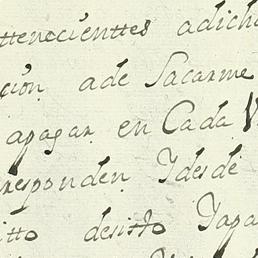 ttenecienttes adicha
ción ade Sacarme
apagar en Cada V
responden Ydesde
itto desisto Yapa